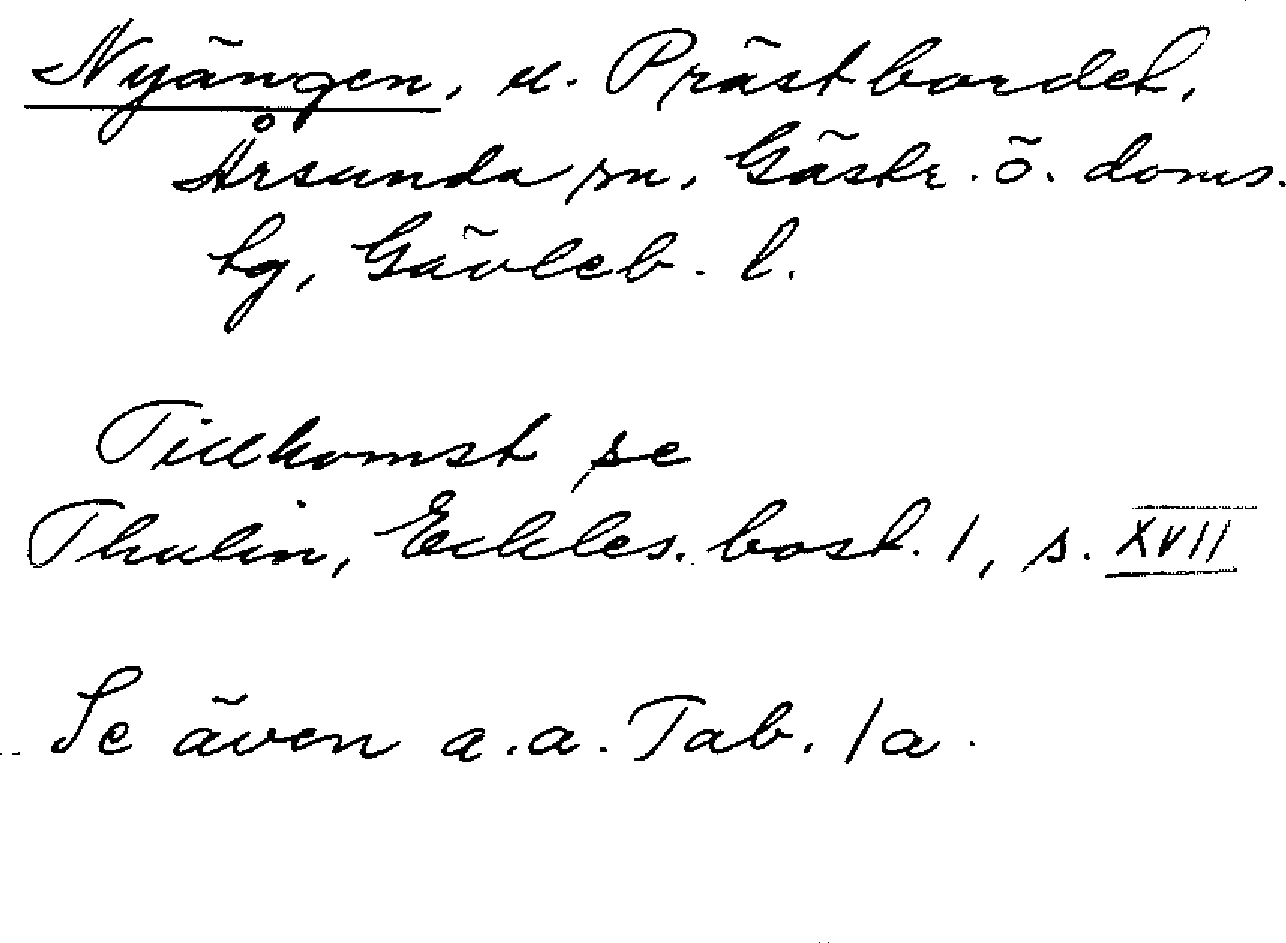 Nyängen, u. Prästbordet,
Årsunda sn, Gästr. ö. doms.
hg, Gävleb. l.
Tillkomst se
Thulin, Eckles. bost. 1, s. XVII
Se även a.a. Tab. 1a.